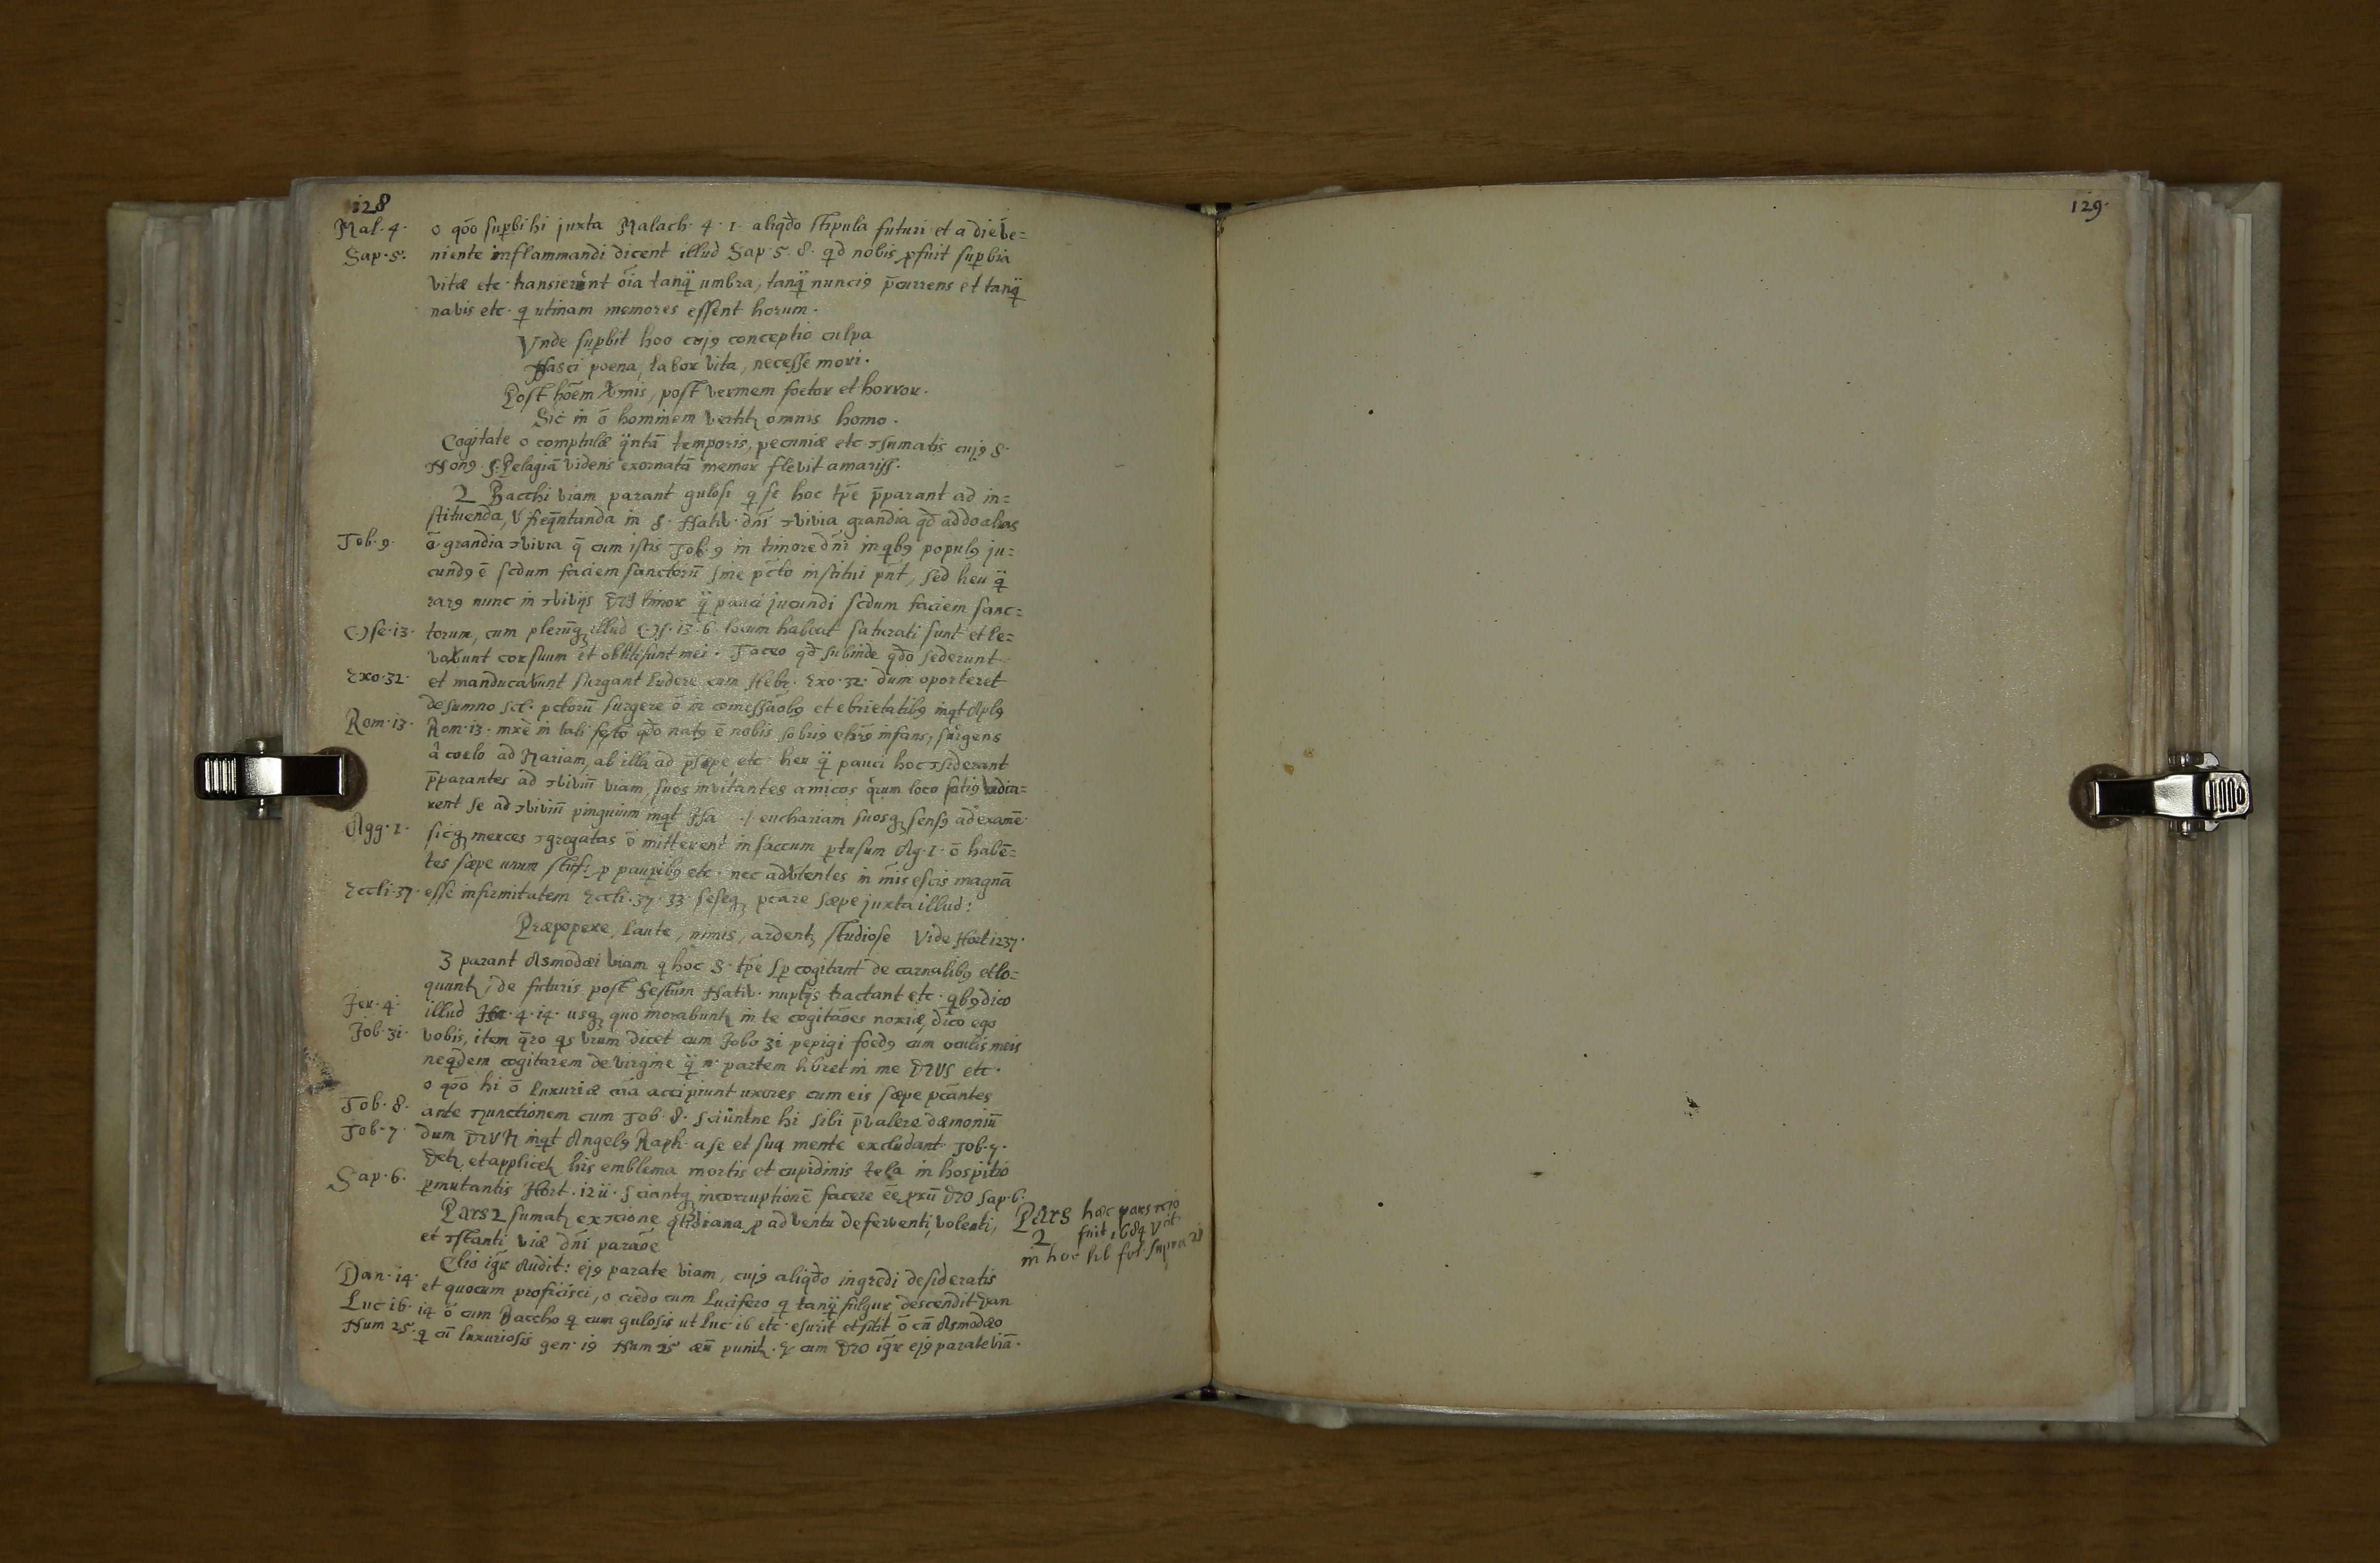 128
Mal. 4. o qōo superbi hi juxta Malach. 4. 1. aliqdo stipula futuri et a die ve=
Sap. 5. niente inflammandi dicent illud Sap. 5. 8. qd nobis profuit superbia
vitæ etc. transierunt oīa tanq̄ umbra, tanq̄ nuncis p̄currens et tanq̄
navis etc. q utinam memores essent horum.
Vnde superbit hoo cujs conceptio culpa
Nasci poena, labor vita, necesse mori.
Post hōem vermis, post vermem foetor et horror.
Sic in ō hominem vertitz omnis homo.
Cogitate o comptulæ q̄ntā temporis, pecuniæ etc. ꝯsumatis cujs S.
Nons. S. Pelagiā videns exornatā memor flevit amariss.
2 Bacchi viam parant gulosi q se hoc tp̄e p̄parant ad in=
stituenda, v freq̄ntanda in S. Nativ. dnī ꝯvivia grandia qd addo alias
Tob. 9. grandia ꝯvivia q̄ cum istis Tob. 9 in timore dnī in qbs populs ju=
cunds ē scdum faciem sanctorū sine pcto institui pnt, sed heu q̄
rars nunc in ꝯvivijs DEI timor q̄ pauci jucundi scdum faciem sanc=
Ose. 13. torum, cum plerūqz illud Os. 13. 6. locum habeat saturati sunt et le=
vavunt cor suum et obliti sunt mei. Taceo qd subinde qdo sederunt
Exo. 32. et manducavunt surgant ludere cum Hebr. Exo. 32. dum oporteret
de sumno scl. pctorū surgere ō in comessāobs et ebrietatibs inqt Apls
Rom. 13. Rom. 13. mxē in tali festo qdo nats ē nobis sobris infans, surgens
â coelo ad Mariam, ab illa ad pscpe etc. heu q̄ pauci hoc ꝯsiderant
p̄parantes ad ꝯviviū viam, suos invitantes amicos qrum loco satis
rent se ad ꝯviviū pinguium inqt Isa .|. euchariam suosqz senss ad examē
Agg. 1. sicqz merces ꝯgregatas ō mitterent in saccum ptusum Ag. 1. ō habē=
tes sæpe unum p pauperibs etc. nec advtentes in mīs escis magnā
Eccli. 37. esse infirmitatem Eccli. 37. 33. seseqz pcare sæpe juxta illud:
Præpopere, laute, nimis, ardentz studiose Vide Hort 1237.
3 parant Asmodæi viam q hoc S. tp̄e sp cogitant de carnalibs et lo=
quuntz, de futuris post Festum Nativ. nuptijs tractant etc. qbs dico
Jer. 4. illud Jer. 4. 14. usqz quo morabuntz in te cogitāoes noxiæ, dico ego
Job. 31. vobis, item q̄ro qs vrum dicet cum Jobo 31 pepigi foeds cum oculis meis
neqdem cogitarem de virgine q̄ n. partem hbret in me DEVS etc.
o qōo hi ō luxuriæ cā accipiunt uxores cum eis sæpe pcantes
Tob. 8. ante ꝯjunctionem cum Tob. 8. sciuntne hi sibi p̄valere dæmoniū
Tob. 7. dum DEVM inqt Angels Raph. a se et sua mente excludant Tob. 7.
Detz et applicetz his emblema mortis et cupidinis tela in hospitio
Sap. 6. pmutantis Hort. 1211. Sciantqz incorruptionē facere ēe pxū DEO Sap. 6.
Pars 2 sumatz ex ꝯcione qtidiana p adventu deferventi, volenti,
et ꝯstanti viæ dnī parāoe
Pars 2 hæc pars ꝯcio
fuit 1684
in hoc lib fol. supra 28
Clio igr Audit: ejs parate viam, cujs aliqdo ingredi desideratis
Dan. 14. et quocum proficisci, o credo cum Lucifero q tanq̄ fulgur descendit Dan
Luc 16. 14 ō cum Baccho q cum gulosis ut Luc 16 etc. esurit et sitit ō cū Asmodæo
Num 25. q cū luxuriosis gen. 19 Num 25 punitz. cum DEO igr ejs parate viā.
129.